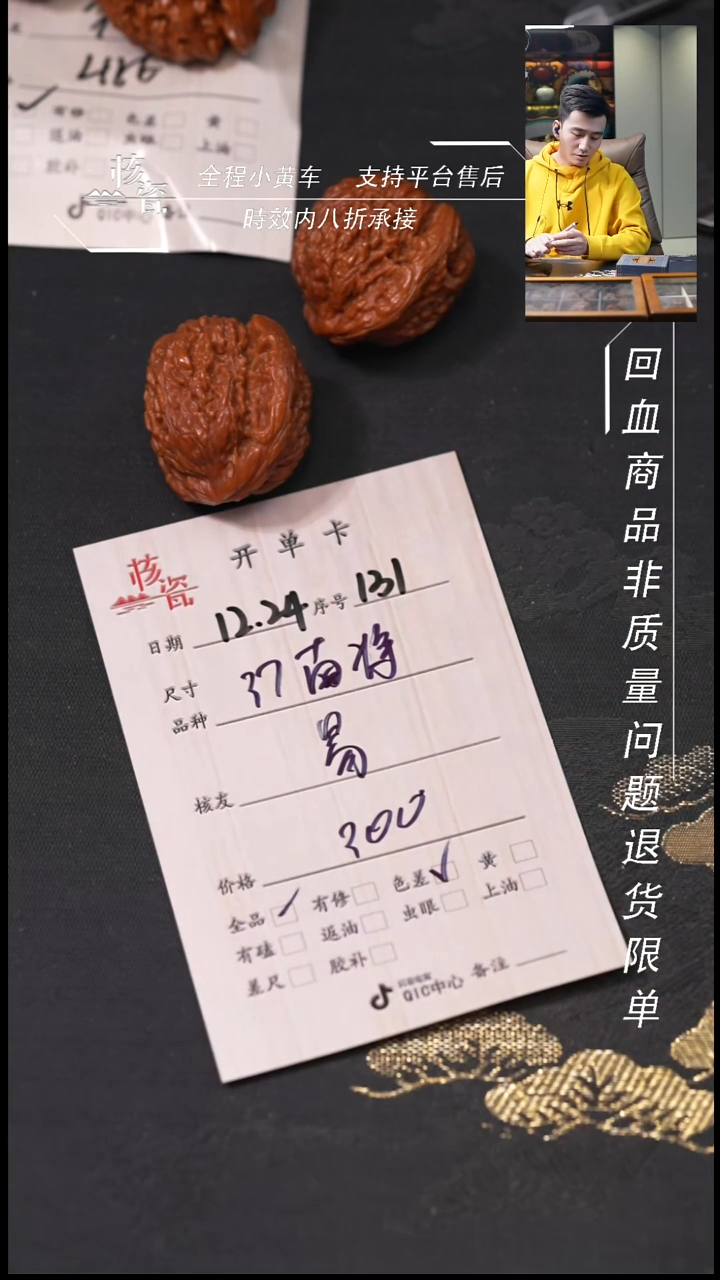 全程小黄车 支持平台售后
時效内八折承接
核瓷
有修 色差 黄
返油 虫眼 上油
胶补
QIC中心
回血商品非质量问题退货限单
核瓷 开单卡
日期 12.24 序号 131
尺寸 37南将
品种
核友 易
价格 300
全品 ✓ 有修 色差 ✓ 黄
有磕 返油 虫眼 上油
差尺 胶补
QIC中心 备注